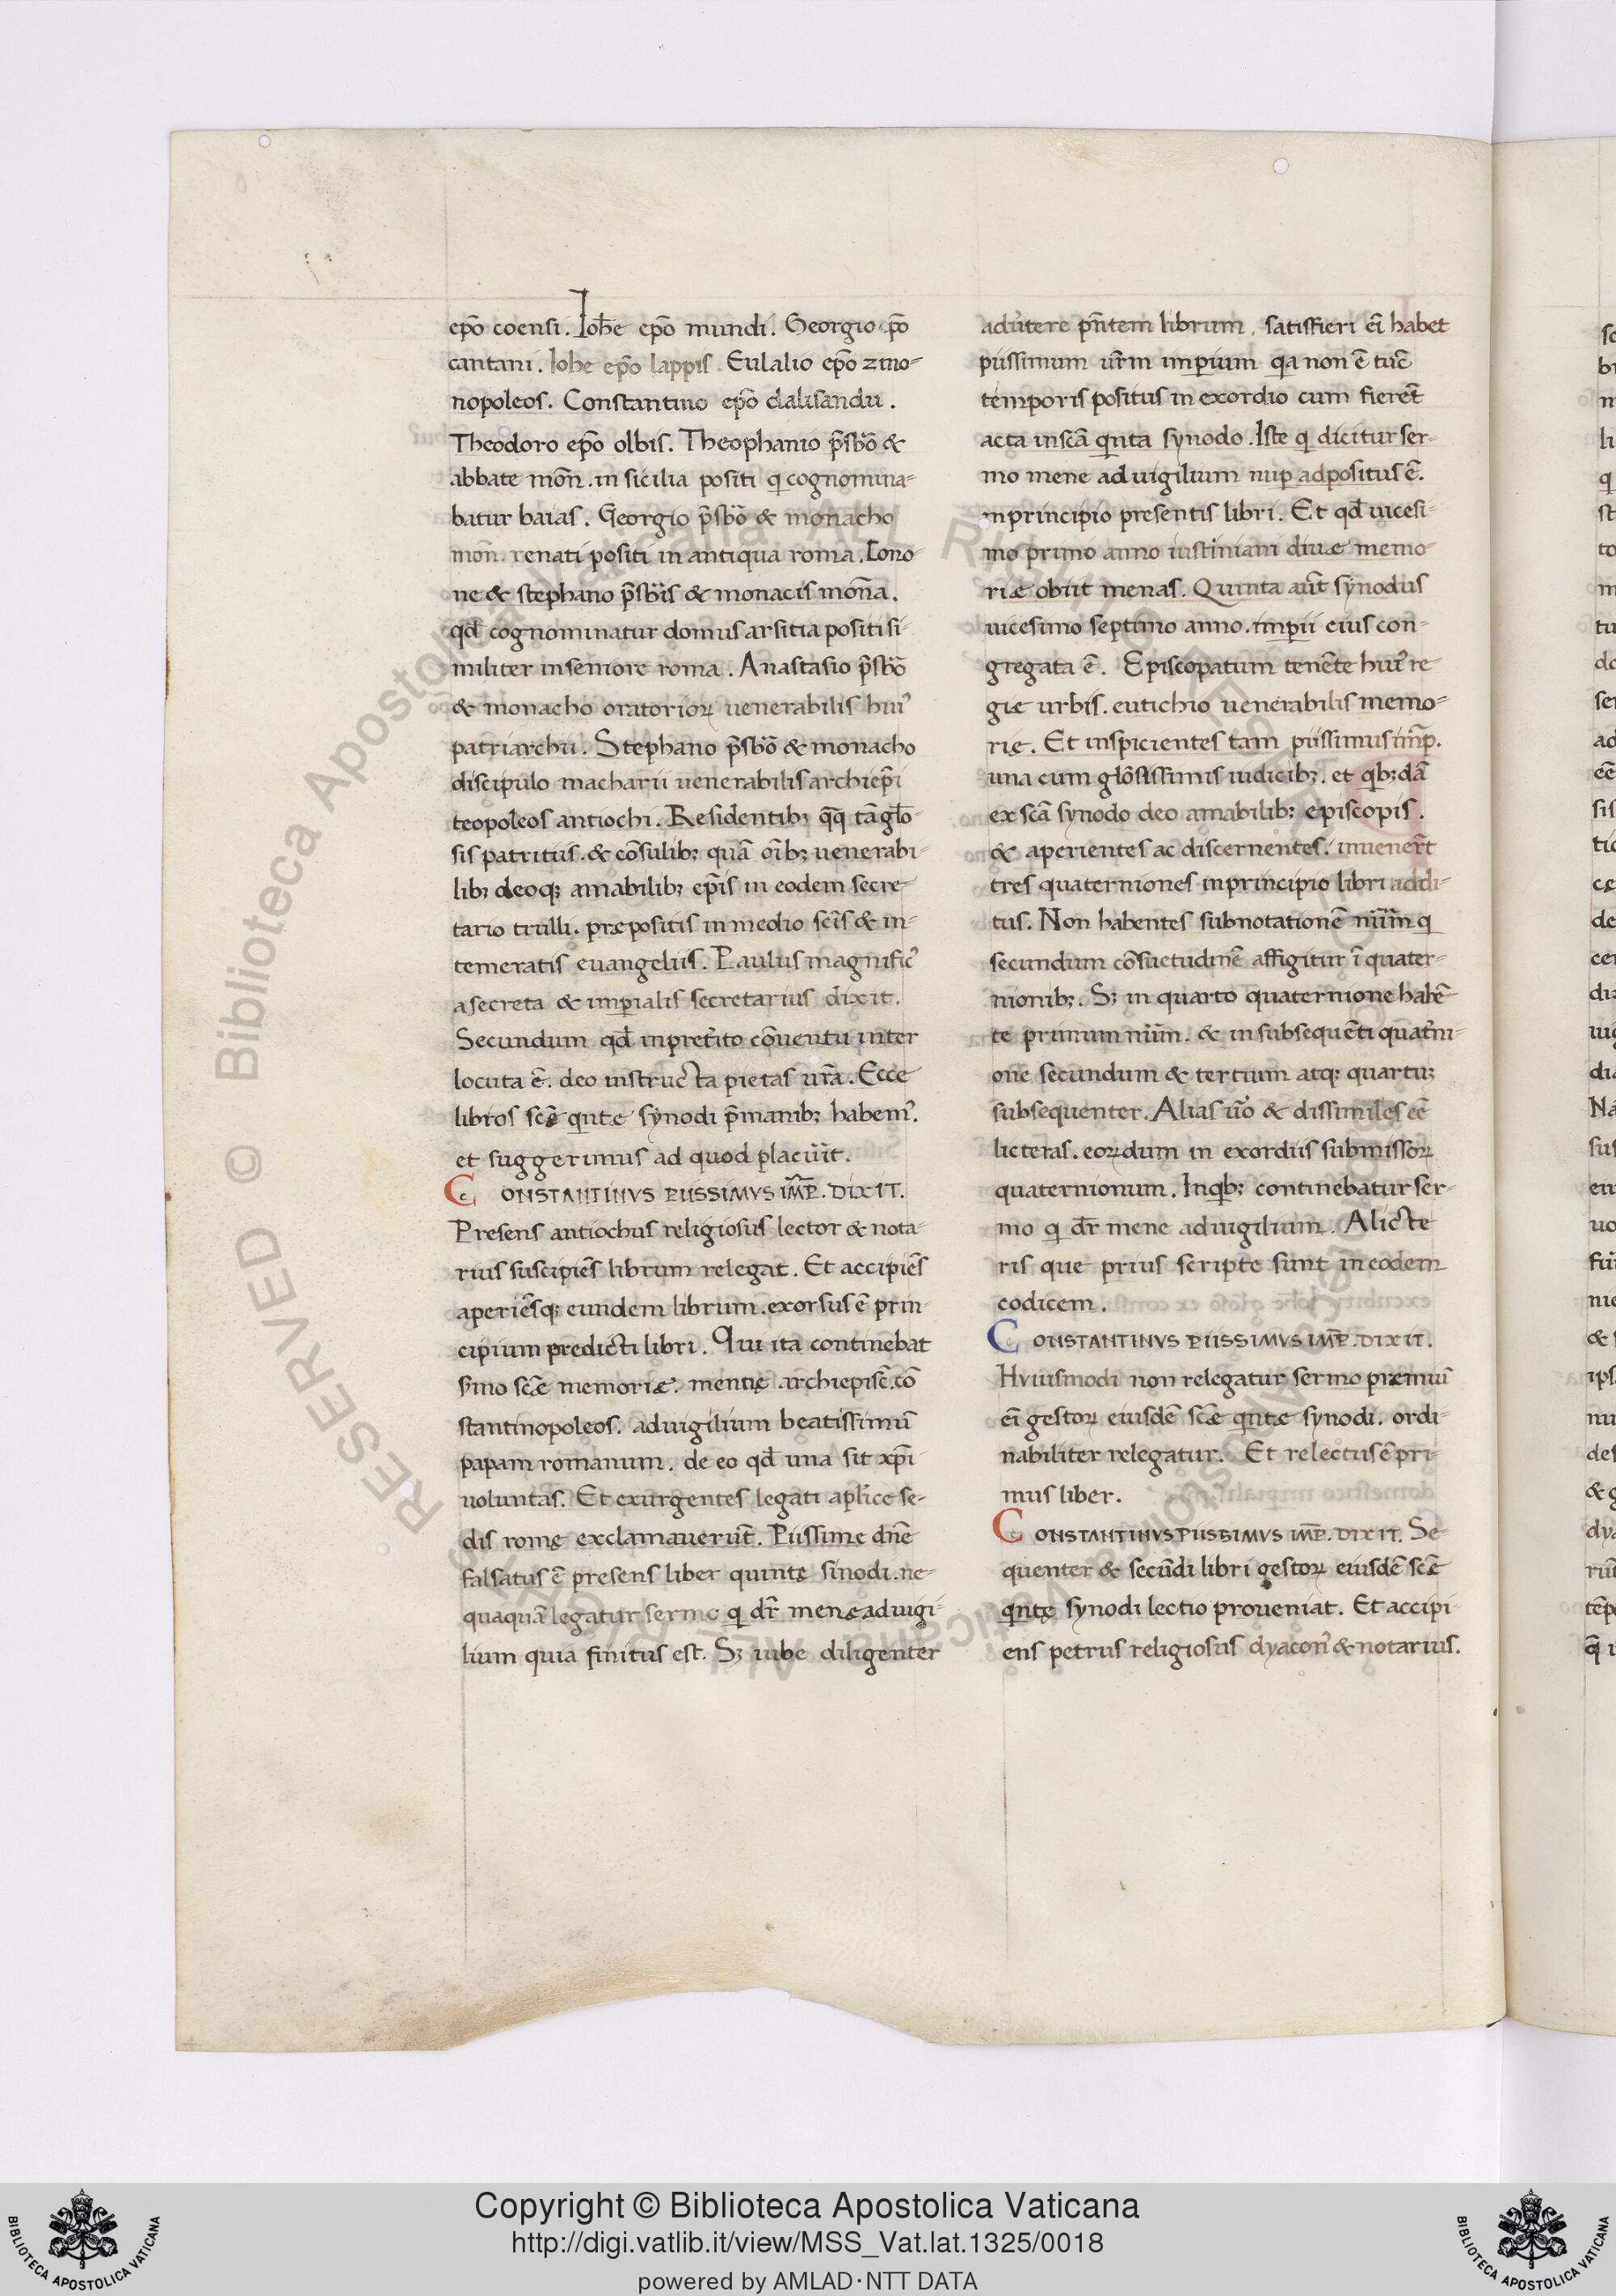 ep̄o coensi. Ioh̄e ep̄o mundi. Georgio ep̄o
cantani. Iohe ep̄o lappis. Eulalio ep̄o zino-
nopoleos. Constantino ep̄o dalisandu.
Theodoro ep̄o olbis. Theophanio p̄sbō &
abbate mōn. in sicilia positi q cognomina-
batur baias. Georgio p̄sbō & monacho
mōn. renati positi in antiqua roma. Cono-
ne & stephano p̄sbīs & monacis mōna.
qd̄ cognominatur domus arsitia positi si-
militer inseniore roma. Anastasio p̄sbō
& monacho oratorioꝝ uenerabilis huiꝰ
patriarchii. Stephano p̄sbō & monacho
discipulo macharii uenerabilis archiep̄i
teopoleos antiochi. Residentib; q̄q tā glō-
sis patritiis. & cōsulib; quā oīb; uenerabi-
lib; deoq; amabilib; ep̄is in eodem secre-
tario trulli. prępositis in medio scīs & in-
temeratis euangeliis. Paulus magnificꝰ
asecreta & imꝑialis secretarius dixit.
Secundum qd̄ inpret̓ito cōuentu inter
locuta ē. deo instructa pietas ur̄a. Ecce
libros scē qntæ synodi p̄manib; habemꝰ.
et suggerimus ad quod placuūt.
CONSTANTINVS PIISSIMVS IM̄P. DIXIT.
Presens antiochus religiosus lector & nota-
rius suscipiēs librum relegat. Et accipiēs
aperiēsq; eundem librum. exorsus ē prin-
cipium predicti libri. Qui ita continebat
s̓mo scǣ memoriæ. menę archiepisc̄. cō
stantinopoleos. aduigilium beatissimū
papam romanum. de eo qd̄ una sit xp̄i
uoluntas. Et exurgentes legati aplīce se-
dis romę exclamauerūt. Piissime dn̄e
falsatus ē presens liber quintę sinodi. ne-
quaquā legatur sermo q dr̄ menę aduigi-
lium quia finitus est. S; iube diligenter
adu̓tere pn̄tem librum. satisfieri eī habet
piissimum ur̄m imꝑium qa non ē tūc
temporis positus in exordio cum fierēt
acta inscā qnta synodo. Iste q dicitur ser-
mo mene ad uigilium nuꝑ adpositus ē.
inprincipio presentis libri. Et qd̄ uicesi-
mo primo anno iustiniani diuæ memo-
riæ obiit menas. Quinta aūt synodus
uicesimo septimo anno. imꝑii eius con-
gregata ē. Episcopatum tenēte huiꝰ re-
gię urbis. eutichio uenerabilis memo-
rię. Et inspicientes tam piissimus im̄p.
una cum glōsissimis iudicib;. et qb;dā
ex scā synodo deo amabilib; episcopis.
& aperientes ac discernentes. inuener̄t
tres quaterniones inprincipio libri addi-
tus. Non habentes subnotationē nūm q
secundum cōsuetudinē affigitur ī quater-
nionib;. S; in quarto quaternione habē-
te primum nūm. & in subsequēti quat̓ni-
one secundum & tertium atq; quartu;
subsequenter. Alias ūo & dissimiles eē
licteras. eoꝝdum in exordiis submissoꝝ
quaternionum. Inqb; continebatur ser-
mo q dr̄ mene aduigilium. A licte
ris que prius scripte sunt in eodem
codicem.
CONSTANTINVS PIISSIMVS IM̄P. DIXIT.
Huiusmodi non relegatur sermo præmiū
eī gestoꝝ eiusdē scǣ qntæ synodi. ordi-
nabiliter relegatur. Et relectus ē pri-
mus liber.
CONSTANTINVS PIISSIMVS IM̄P. DIXIT. Se-
quenter & secūdi libri gestoꝝ eiusdē scǣ
qntę synodi lectio proueniat. Et accipi
ens petrus religiosus dyaconꝰ & notarius.
RESERVED © Biblioteca Apostolica Vaticana. ALL RIGHTS RESERVED
Copyright © Biblioteca Apostolica Vaticana
http://digi.vatlib.it/view/MSS_Vat.lat.1325/0018
powered by AMLAD·NTT DATA
BIBLIOTECA APOSTOLICA VATICANA
BIBLIOTECA APOSTOLICA VATICANA